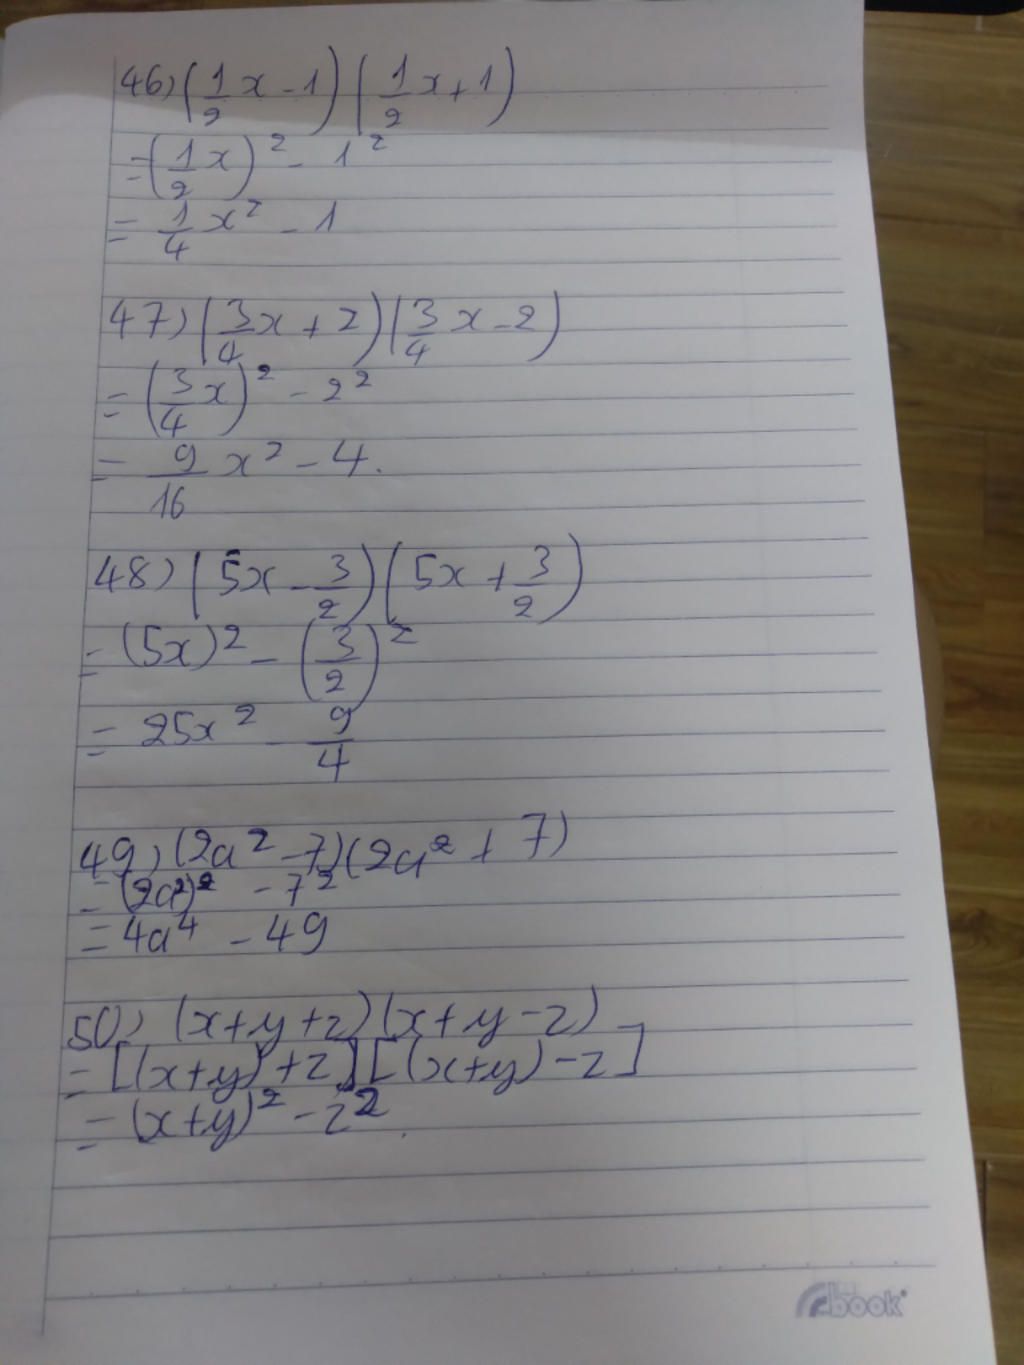 46) (1/2 x - 1) (1/2 x + 1)
= (1/2 x)² - 1²
= 1/4 x² - 1
47) (3/4 x + 2) (3/4 x - 2)
= (3/4 x)² - 2²
= 9/16 x² - 4.
48) (5x - 3/2) (5x + 3/2)
= (5x)² - (3/2)²
= 25x² - 9/4
49) (2a² - 7) (2a² + 7)
= (2a²)² - 7²
= 4a⁴ - 49
50) (x + y + z) (x + y - z)
= [(x + y) + z] [(x + y) - z]
= (x + y)² - z².
book